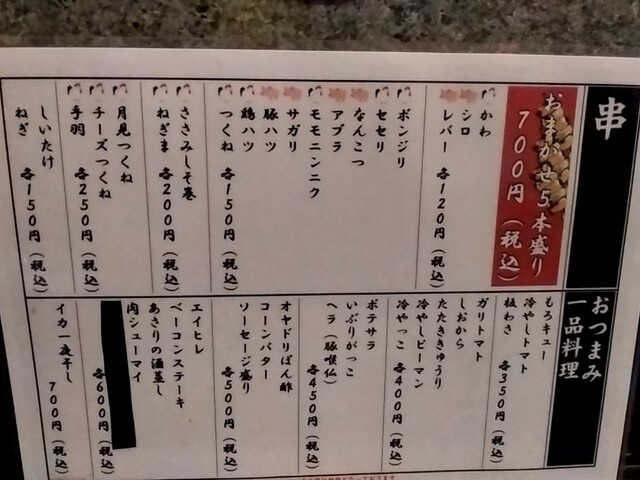 串
おまかせ5本盛り
700円(税込)
かわ
シロ
レバー
各120円(税込)
ボンジリ
セセリ
なんこつ
アブラ
モモニンニク
サガリ
豚ハツ
鶏ハツ
つくね
各150円(税込)
ささみしそ巻
ねぎま
各200円(税込)
月見つくね
チーズつくね
手羽
各250円(税込)
しいたけ
ねぎ
各150円(税込)
おつまみ
一品料理
もろキュー
冷やしトマト
板わさ
各350円(税込)
ガリトマト
しおから
たたききゅうり
冷やしピーマン
冷やっこ
各400円(税込)
ポテサラ
いぶりがっこ
ヘラ(豚喉仏)
各450円(税込)
オヤドリぽん酢
コーンバター
ソーセージ盛り
各500円(税込)
エイヒレ
ベーコンステーキ
あさりの酒蒸し
肉シューマイ
各600円(税込)
イカ一夜干し
700円(税込)